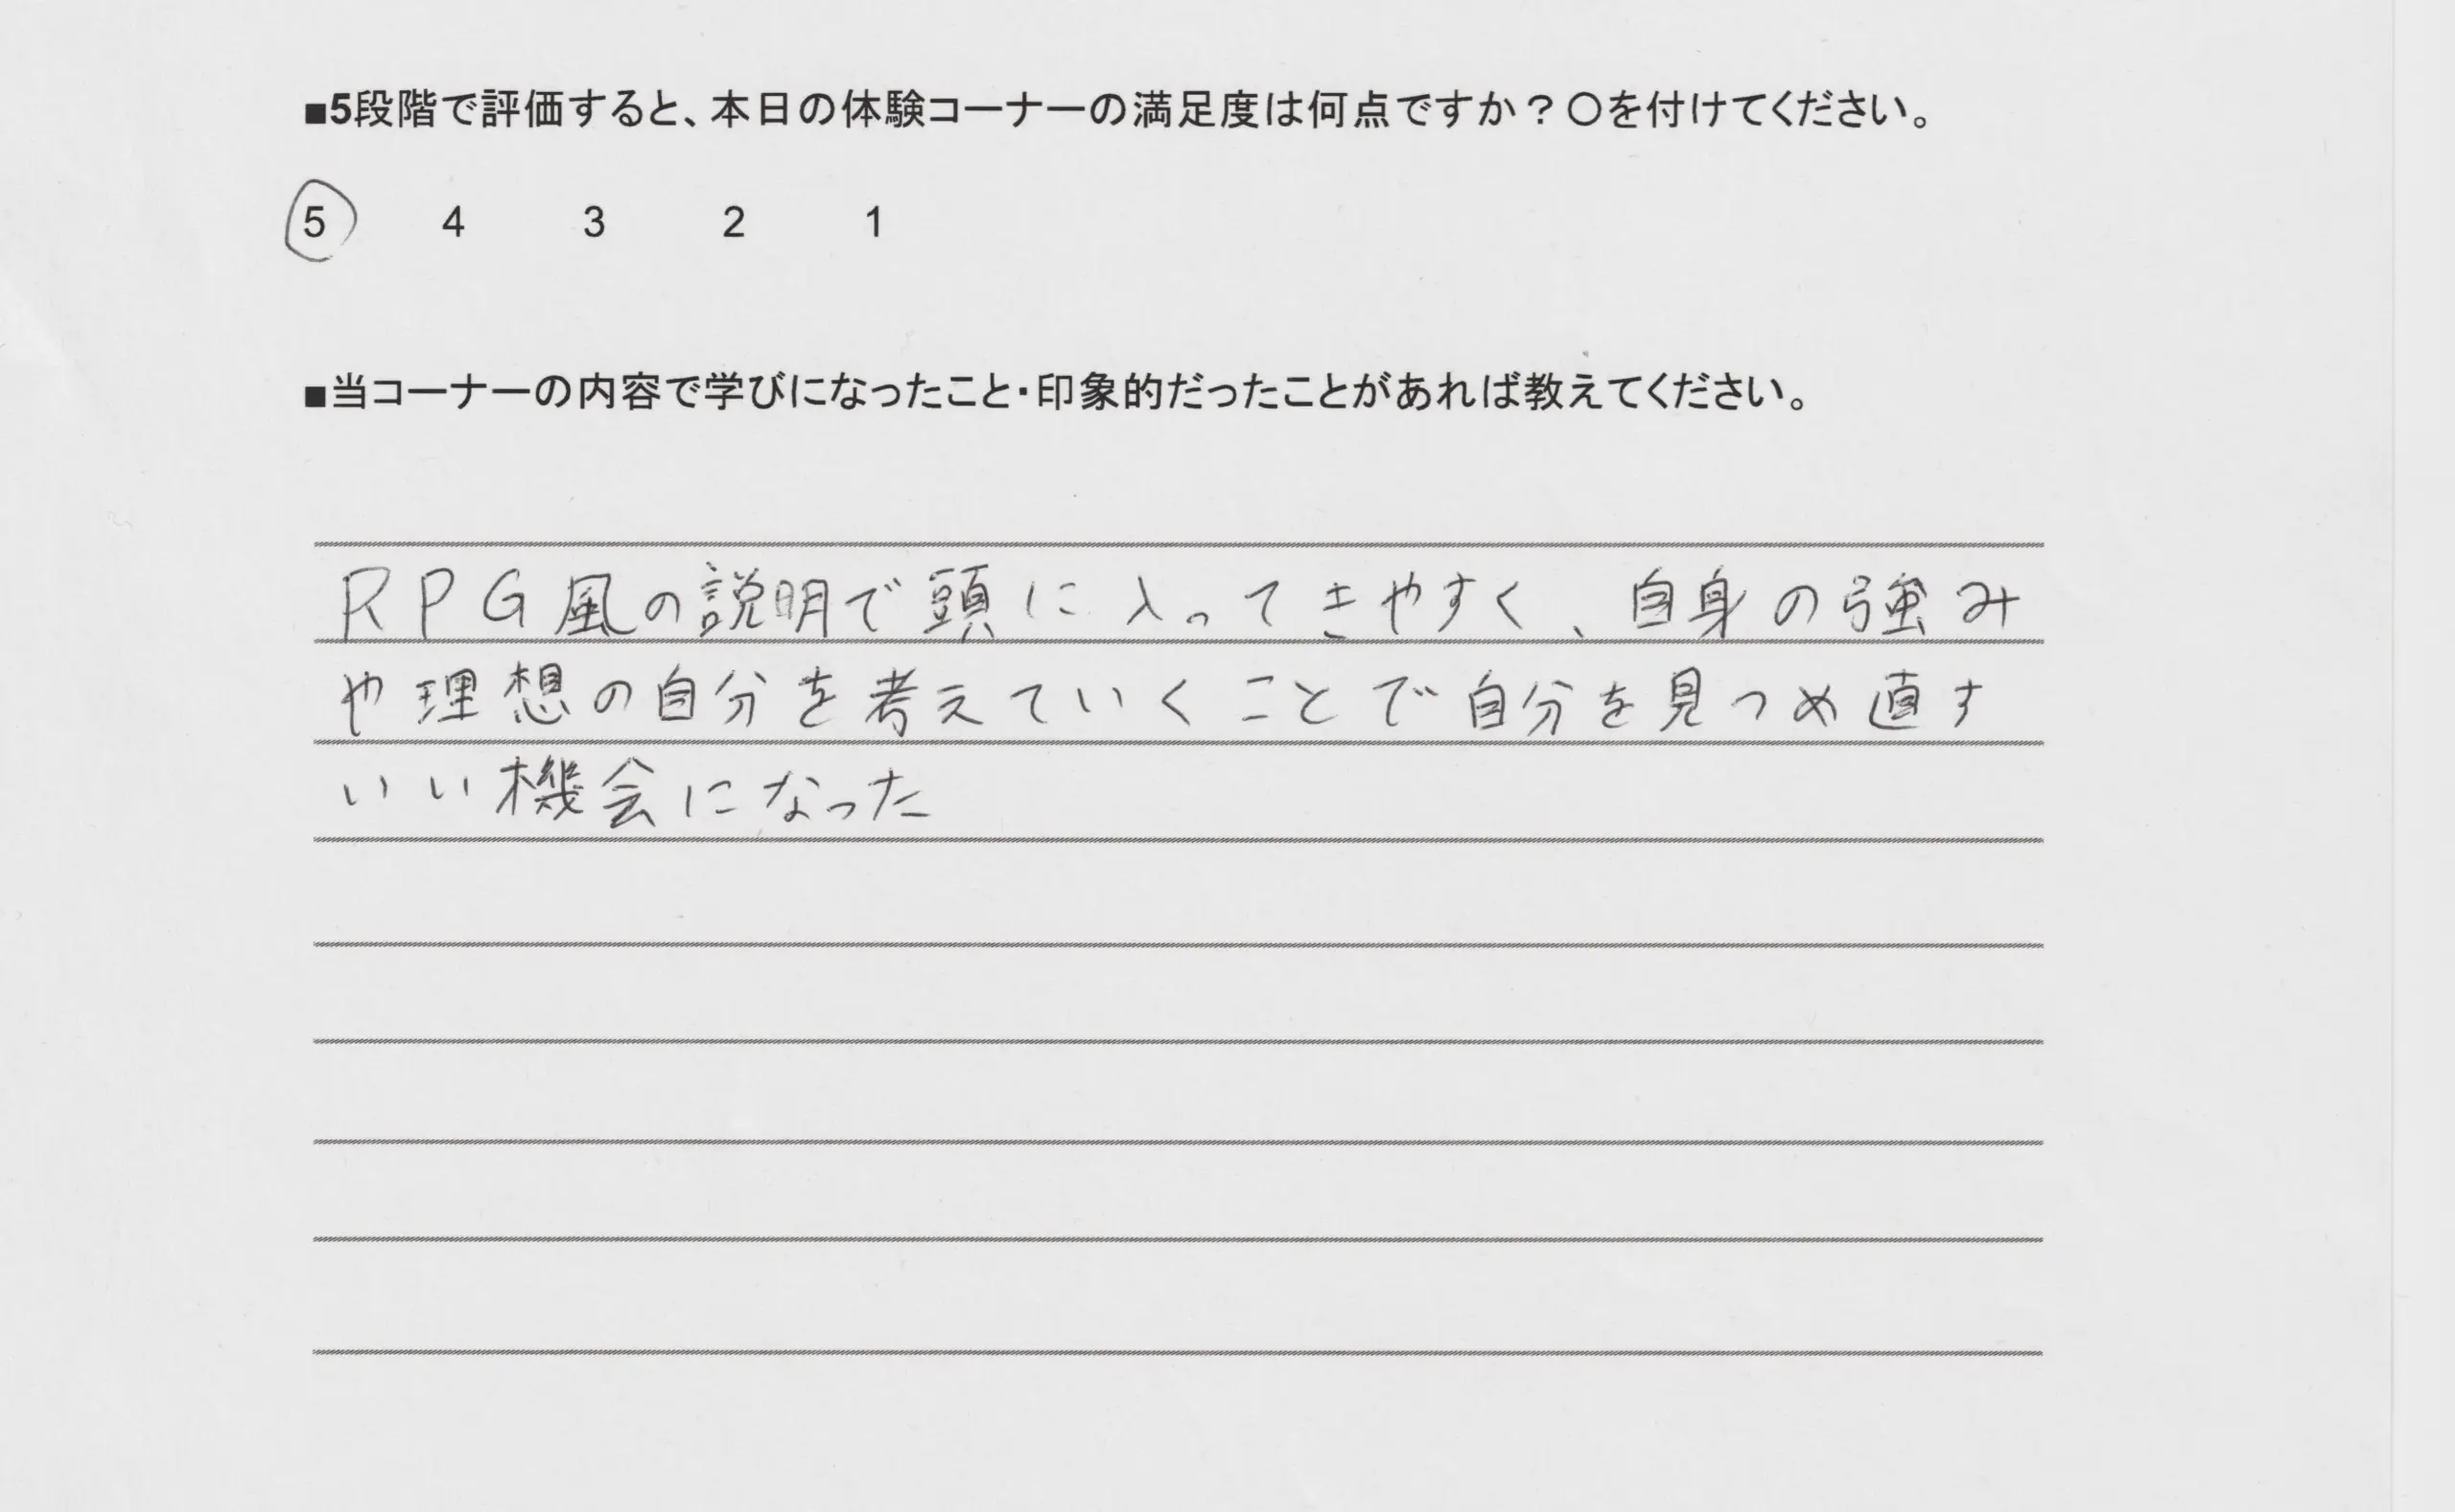 ■5段階で評価すると、本日の体験コーナーの満足度は何点ですか？〇を付けてください。
5 4 3 2 1
■当コーナーの内容で学びになったこと・印象的だったことがあれば教えてください。
RPG風の説明で頭に入ってきやすく、自身の強み
や理想の自分を考えていくことで自分を見つめ直す
いい機会になった